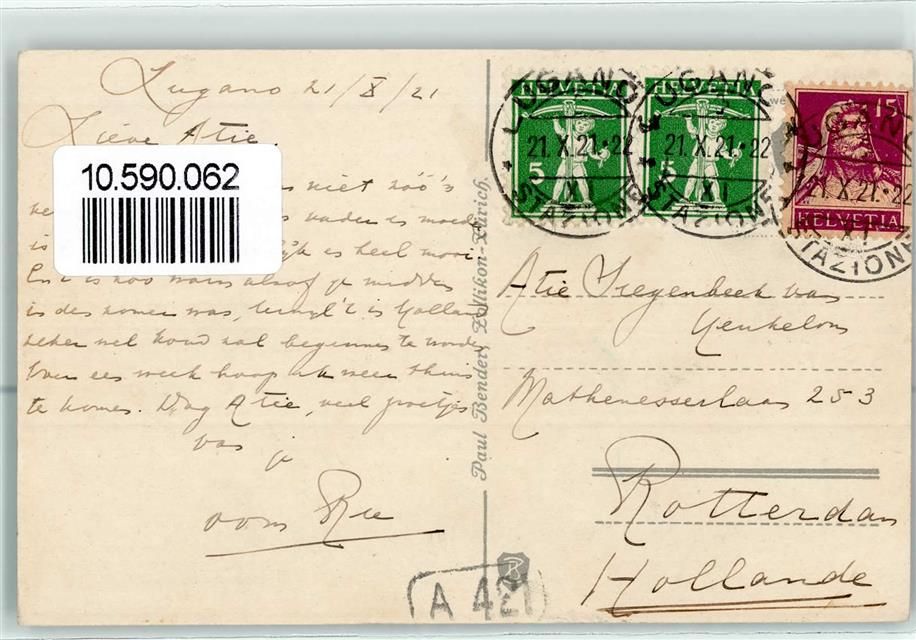 Lugano 21/X/21
Lieve Atie.
10.590.062
is niet zóó'n
vader is moede
is heel mooi.
En 't is zoo warm alsof je midden
in den zomer was, terwijl 't in Holland
zeker wel koud zal beginnen te worden
Over een week hoop ik weer thuis
te komen. Dag Atie, veel groetjes
van je
oom Rie
Paul Bender, Zollikon-Zürich.
HELVETIA
5
HELVETIA
5
15
HELVETIA
LUGANO
21.X.21.22
XI
STAZIONE
LUGANO
21.X.21.22
XI
STAZIONE
LUGANO
21.X.21.22
XI
STAZIONE
Atie Siegenbeek van
Heukelom
Mathenesserlaan 253
Rotterdam
Hollande
A 421